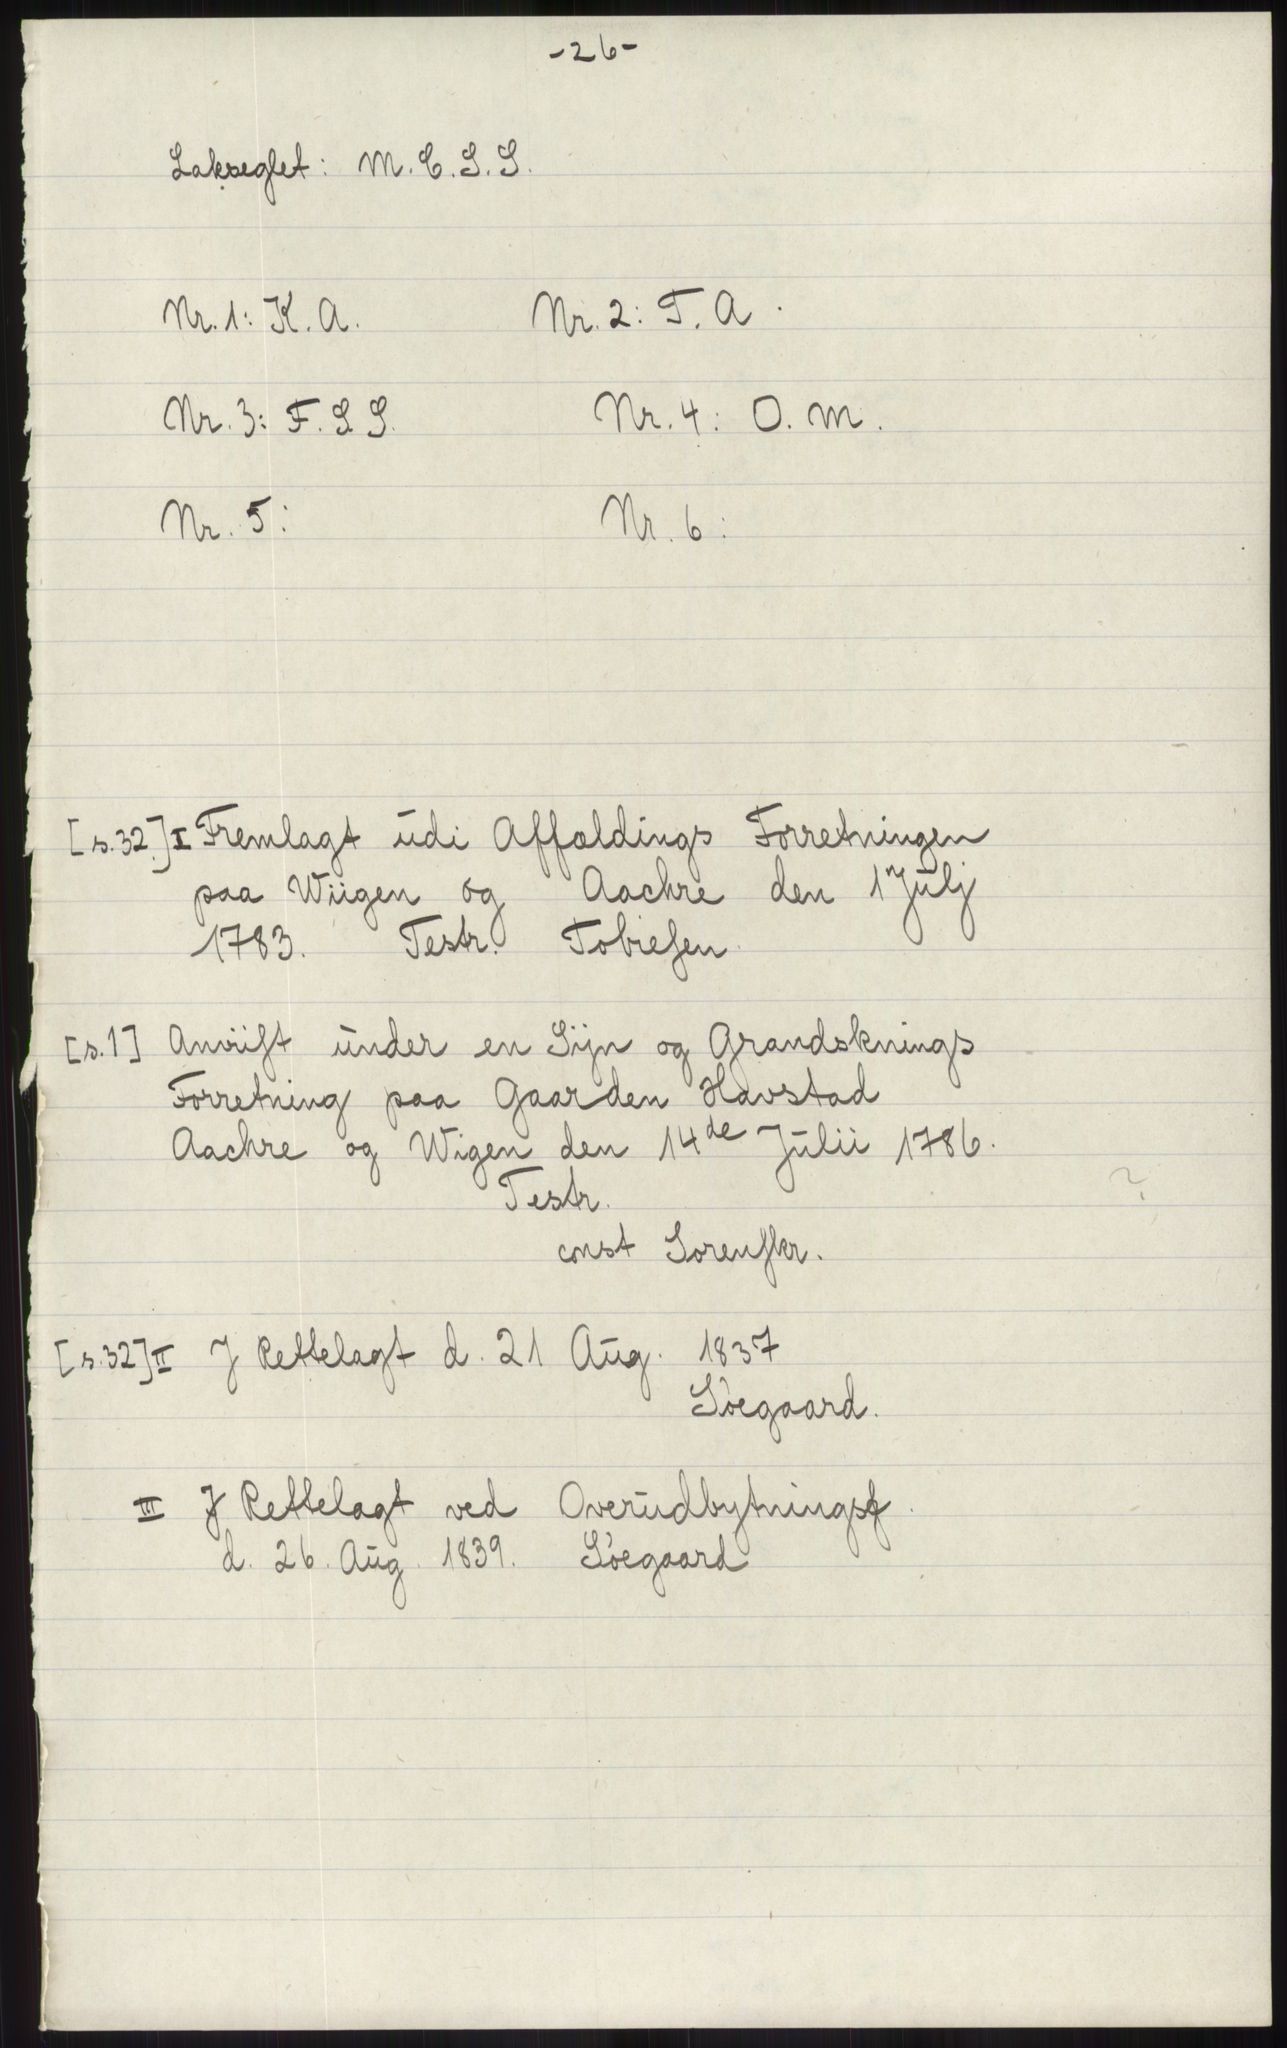 -26-
Lakseglet: M.C.S.S.
Nr. 1: K. A. Nr. 2: T. A.
Nr. 3: F. S S. Nr. 4: O. M.
Nr. 5: Nr. 6:
[s.32.] I Fremlagt udi Affældings Forretningen
paa Wiigen og Aachre den 1 Julj
1783. Testr. Tobiesen
[s.1] Anviist under en Sijn og Grandsknings
Forretning paa Gaarden Havstad
Aachre og Wigen den 14de Julii 1786.
Testr. ?
const Sorenskr.
[s.32] II J Rettelagt d. 21 Aug. 1837
Søegaard.
III J Rettelagt ved Overudbytningsf.
d. 26. Aug. 1839. Søegaard